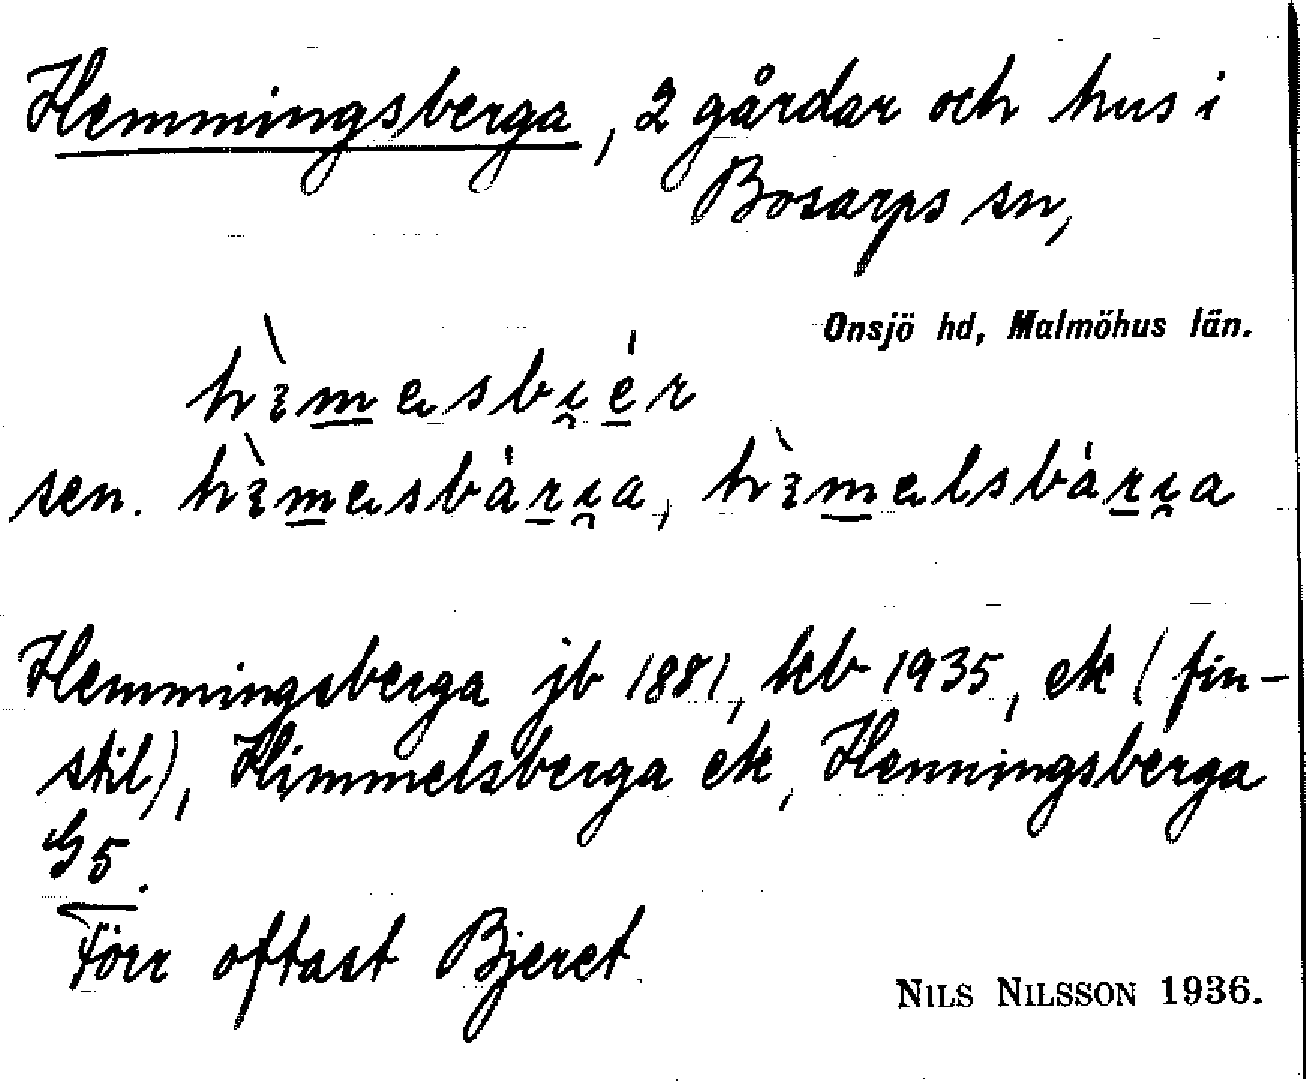 Hemmingsberga, 2 gårdar och hus i
Bosarps sn,
Onsjö hd, Malmöhus län.
sen.
Hemmingsberga jb 1881, kb 1935, ek (fin-
stil), Himmelsberga ek, Henningsberga
G5.
Förr oftast Bjeret
NILS NILSSON 1936.